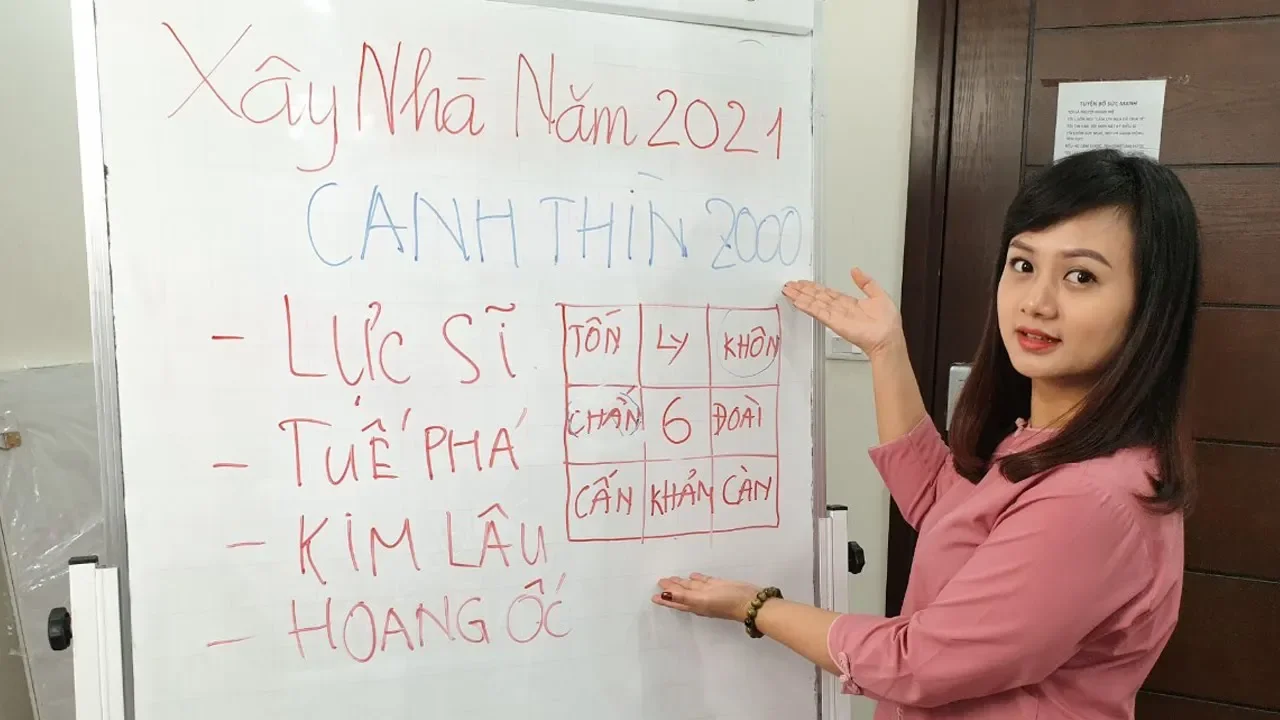 Xây Nhà Năm 2021
CANH THÌN 2000
- LỰC SĨ
- TUẾ PHÁ
- KIM LÂU
- HOANG ỐC
TỐN LY KHÔN
CHẤN 6 ĐOÀI
CẤN KHẢM CÀN
TUYÊN BỐ SỨC MẠNH